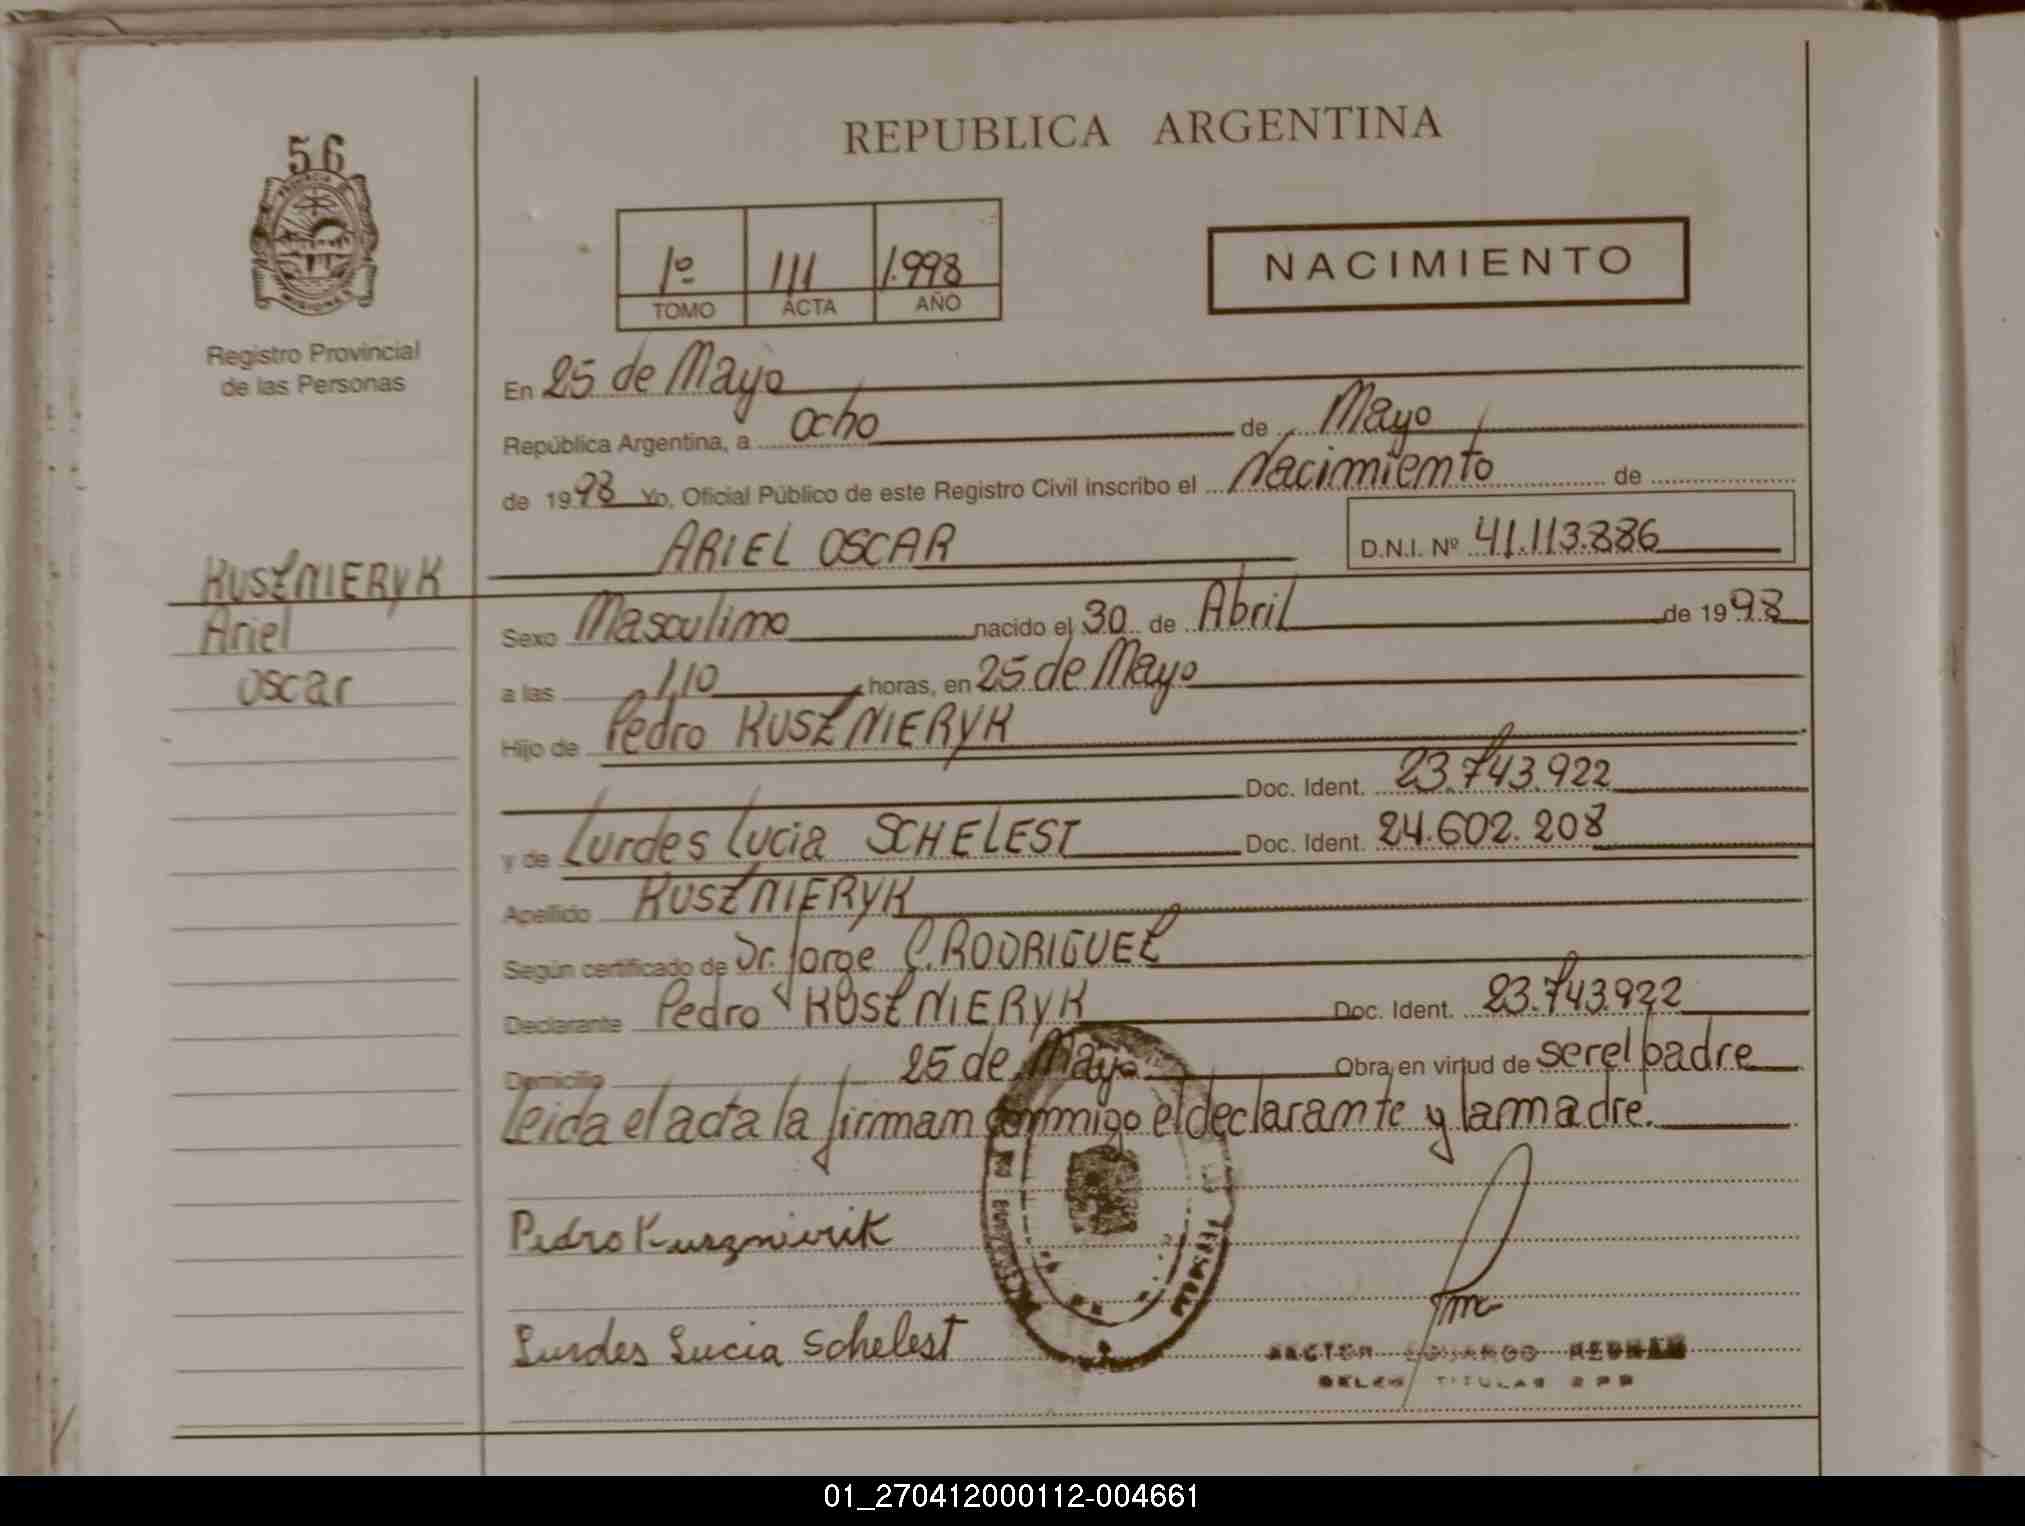 56
REPUBLICA ARGENTINA
1º 111 1.998
TOMO ACTA AÑO
NACIMIENTO
Registro Provincial
de las Personas
En 25 de Mayo
República Argentina, a ocho de Mayo
de 1998 Yo, Oficial Público de este Registro Civil inscribo el Nacimiento de
ARIEL OSCAR D.N.I. Nº 41.113.886
KUSZNIERYK
Ariel
oscar
Sexo Masculino nacido el 30 de Abril de 1998
a las 1,10 horas, en 25 de Mayo
Hijo de Pedro KUSZNIERYK
Doc. Ident. 23.743.922
y de Lurdes Lucia SCHELEST Doc. Ident. 24.602.208
Apellido KUSZNIERYK
Según certificado de Dr. Jorge C. RODRIGUEZ
Declarante Pedro KUSZNIERYK Doc. Ident. 23.743.922
Domicilio 25 de Mayo Obra en virtud de ser el padre
Leida el acta la firman conmigo el declarante y la madre.
Pedro Kusznierik
Lurdes Lucia Schelest
TITULAR
01_270412000112-004661